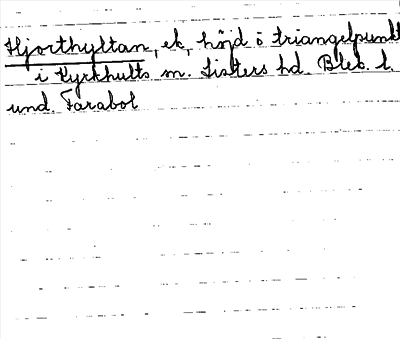 Hjorthyltan, ek, höjd ö triangelpunkt
i Kyrkhults sn. Listers hd. Blek. l.
und. Farabol